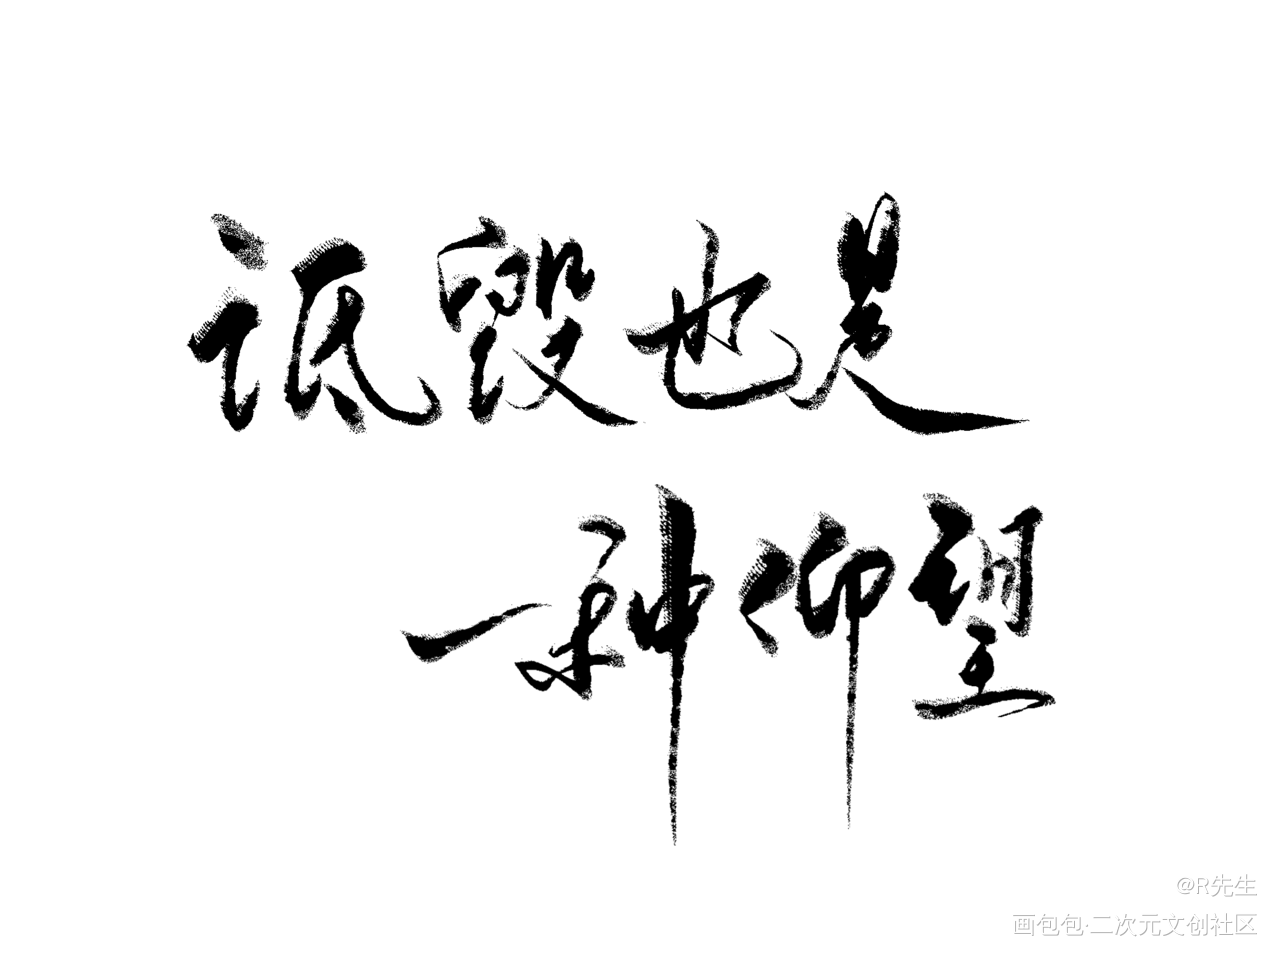 诋毁也是
一种仰望
@R先生
画包包·二次元文创社区